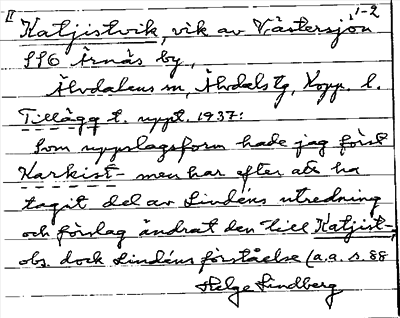 II 1-2
Katjistvik, vik av Västersjön
SSÖ Årnäs by,
Älvdalens sn, Älvdals tg, Kopp. l.
Tillägg t. uppt. 1937:
Som uppslagsform hade jag först
Karkist- men har efter att ha
tagit del av Lindéns utredning
och förslag ändrat den till Katjist-,
obs. dock Lindéns förståelse (a.a. s. 88
Helge Lindberg